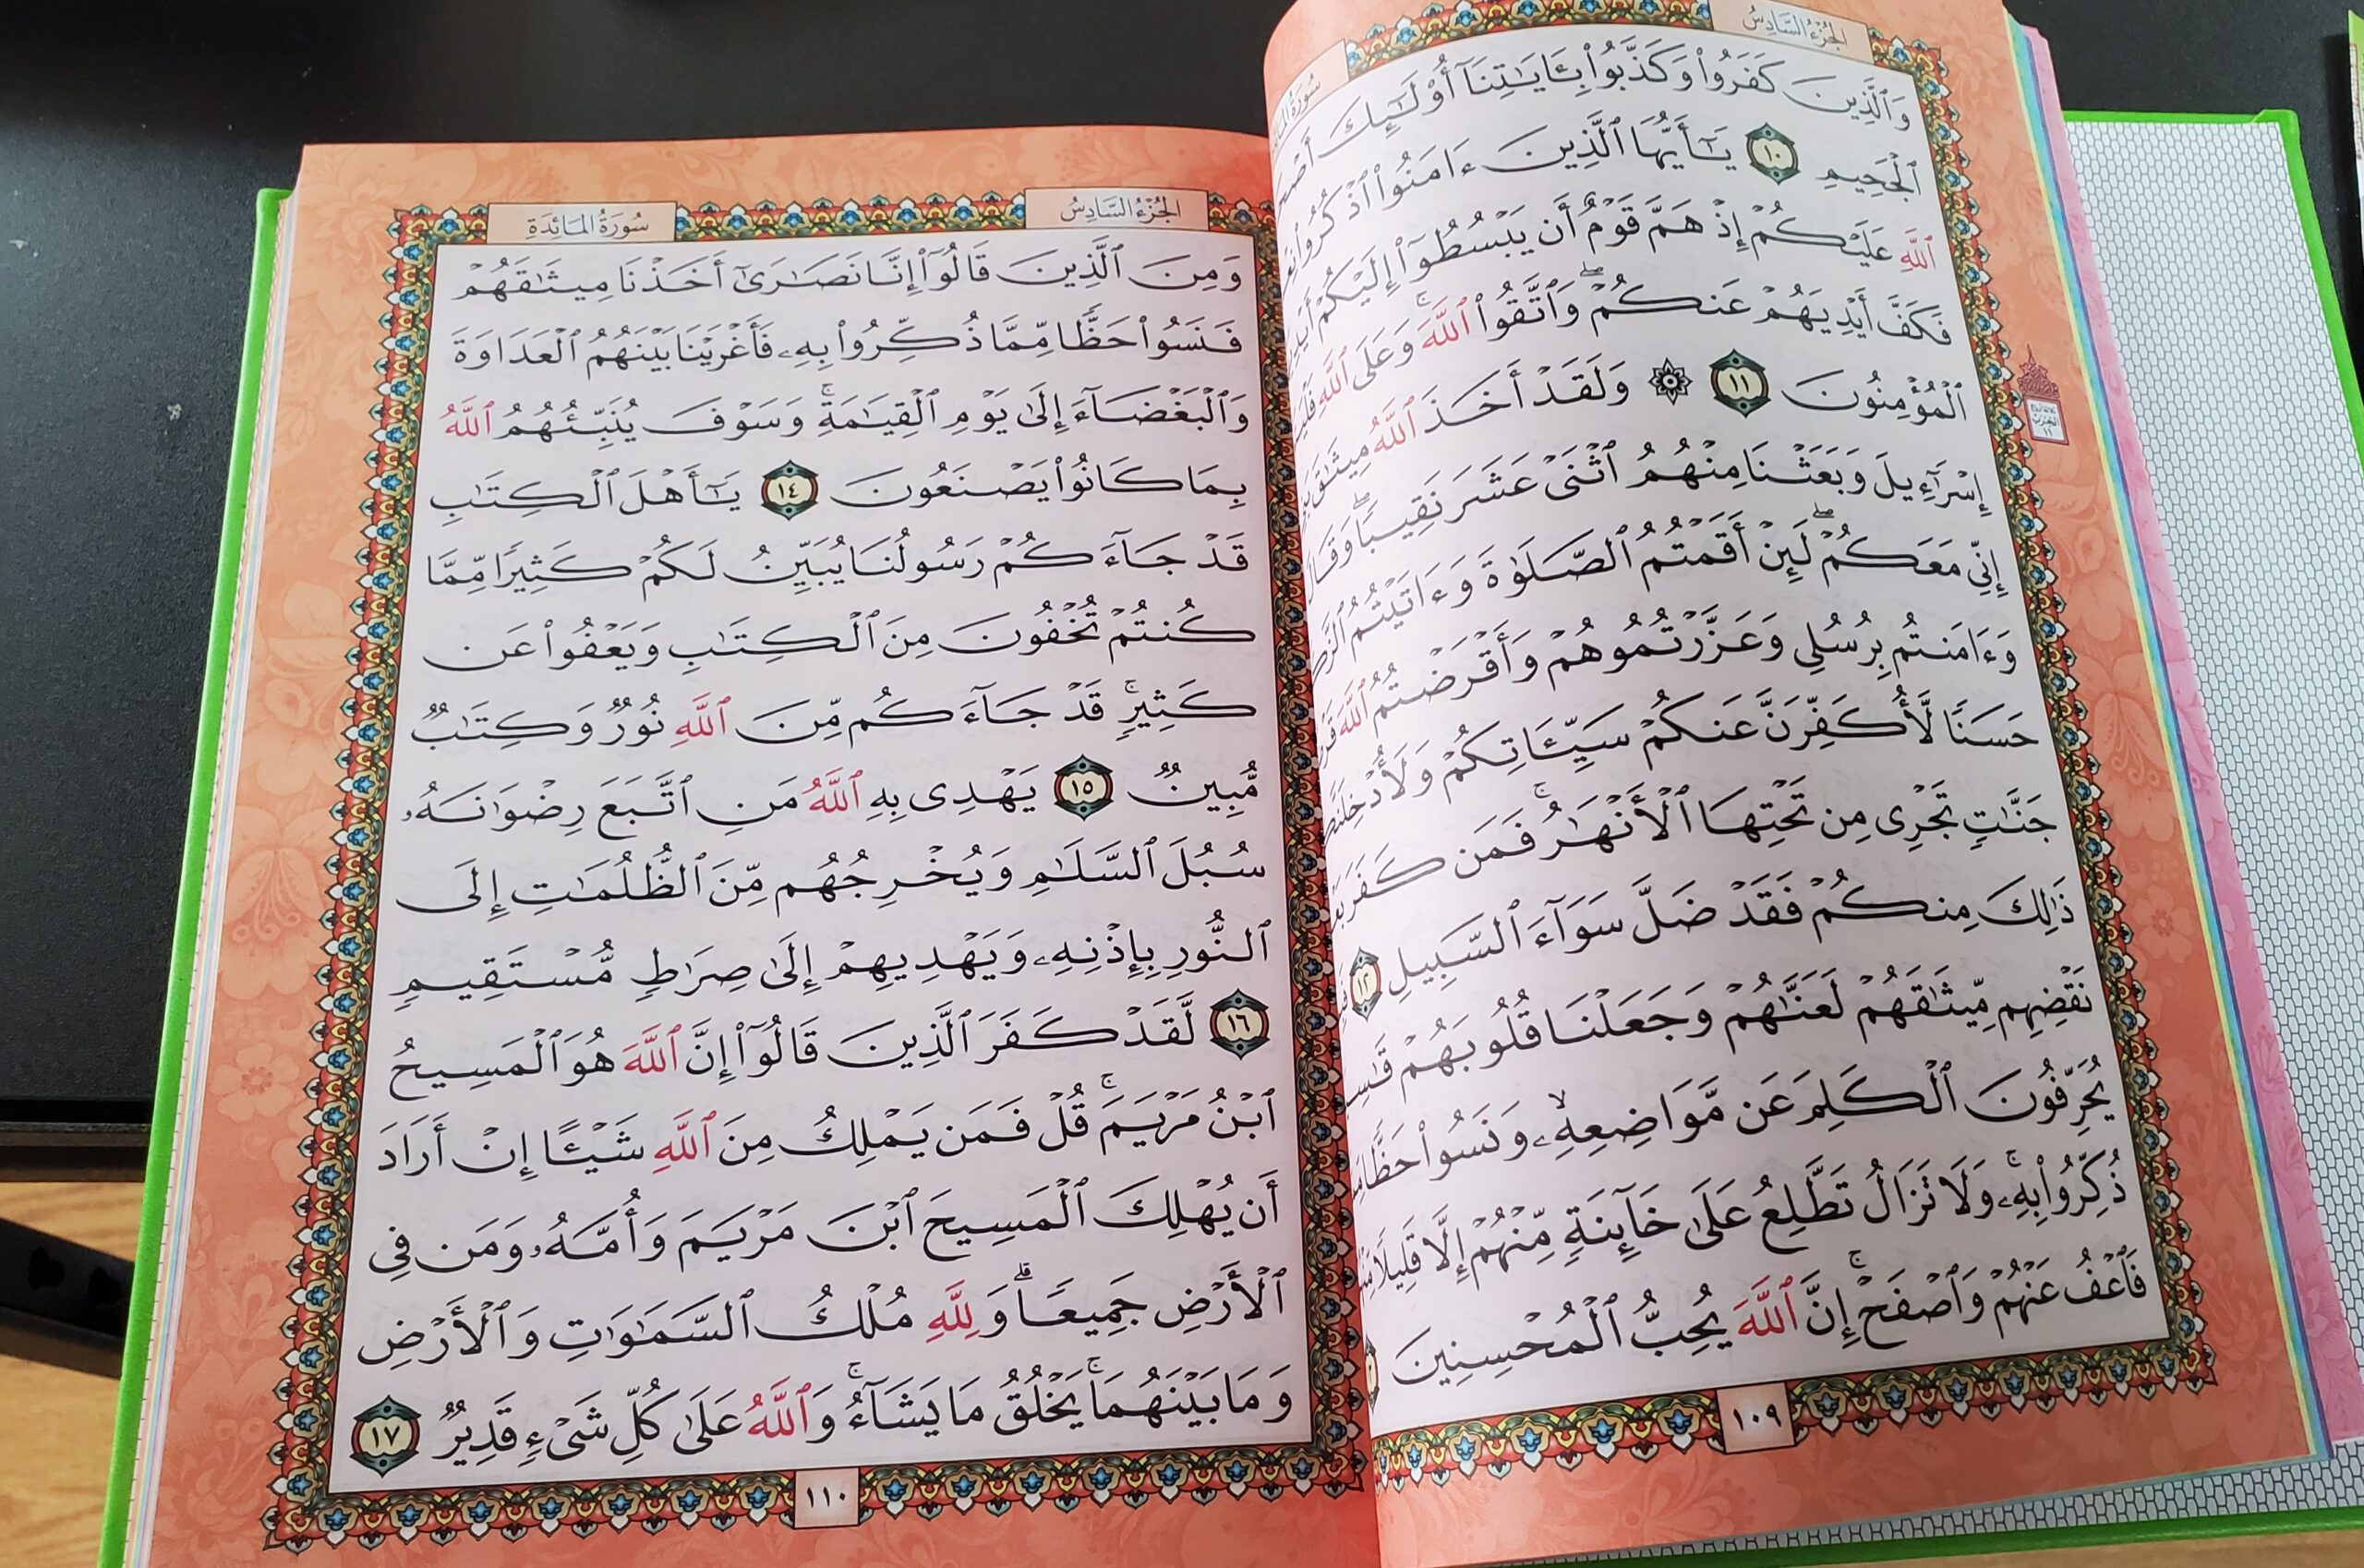 الجُزْءُ السَّادِسُ
وَٱلَّذِينَ كَفَرُوا۟ وَكَذَّبُوا۟ بِـَٔايَـٰتِنَآ أُو۟لَـٰٓئِكَ
ٱلْجَحِيمِ ١٠ يَـٰٓأَيُّهَا ٱلَّذِينَ ءَامَنُوا۟ ٱذْكُرُوا۟
ٱللَّهِ عَلَيْكُمْ إِذْ هَمَّ قَوْمٌ أَن يَبْسُطُوٓا۟ إِلَيْكُمْ
فَكَفَّ أَيْدِيَهُمْ عَنكُمْ ۖ وَٱتَّقُوا۟ ٱللَّهَ ۚ وَعَلَى ٱللَّهِ
ٱلْمُؤْمِنُونَ ١١ ۞ وَلَقَدْ أَخَذَ ٱللَّهُ مِيثَـٰقَ
إِسْرَٰٓءِيلَ وَبَعَثْنَا مِنْهُمُ ٱثْنَىْ عَشَرَ نَقِيبًا ۖ
إِنِّى مَعَكُمْ ۖ لَئِنْ أَقَمْتُمُ ٱلصَّلَوٰةَ وَءَاتَيْتُمُ
وَءَامَنتُم بِرُسُلِى وَعَزَّرْتُمُوهُمْ وَأَقْرَضْتُمُ ٱللَّهَ
حَسَنًا لَّأُكَفِّرَنَّ عَنكُمْ سَيِّـَٔاتِكُمْ
جَنَّـٰتٍ تَجْرِى مِن تَحْتِهَا ٱلْأَنْهَـٰرُ ۚ فَمَن كَفَرَ
ذَٰلِكَ مِنكُمْ فَقَدْ ضَلَّ سَوَآءَ ٱلسَّبِيلِ ١٢
نَقْضِهِم مِّيثَـٰقَهُمْ لَعَنَّـٰهُمْ وَجَعَلْنَا قُلُوبَهُمْ
يُحَرِّفُونَ ٱلْكَلِمَ عَن مَّوَاضِعِهِۦ ۙ وَنَسُوا۟ حَظًّا
ذُكِّرُوا۟ بِهِۦ ۚ وَلَا تَزَالُ تَطَّلِعُ عَلَىٰ خَآئِنَةٍ مِّنْهُمْ إِلَّا قَلِيلًا
فَٱعْفُ عَنْهُمْ وَٱصْفَحْ ۚ إِنَّ ٱللَّهَ يُحِبُّ ٱلْمُحْسِنِينَ
١٠٩
الجُزْءُ السَّادِسُ
سُورَةُ المَائِدَةِ
وَمِنَ ٱلَّذِينَ قَالُوٓا۟ إِنَّا نَصَـٰرَىٰٓ أَخَذْنَا مِيثَـٰقَهُمْ
فَنَسُوا۟ حَظًّا مِّمَّا ذُكِّرُوا۟ بِهِۦ فَأَغْرَيْنَا بَيْنَهُمُ ٱلْعَدَاوَةَ
وَٱلْبَغْضَآءَ إِلَىٰ يَوْمِ ٱلْقِيَـٰمَةِ ۚ وَسَوْفَ يُنَبِّئُهُمُ ٱللَّهُ
بِمَا كَانُوا۟ يَصْنَعُونَ ١٤ يَـٰٓأَهْلَ ٱلْكِتَـٰبِ
قَدْ جَآءَكُمْ رَسُولُنَا يُبَيِّنُ لَكُمْ كَثِيرًا مِّمَّا
كُنتُمْ تُخْفُونَ مِنَ ٱلْكِتَـٰبِ وَيَعْفُوا۟ عَن
كَثِيرٍ ۚ قَدْ جَآءَكُم مِّنَ ٱللَّهِ نُورٌ وَكِتَـٰبٌ
مُّبِينٌ ١٥ يَهْدِى بِهِ ٱللَّهُ مَنِ ٱتَّبَعَ رِضْوَٰنَهُۥ
سُبُلَ ٱلسَّلَـٰمِ وَيُخْرِجُهُم مِّنَ ٱلظُّلُمَـٰتِ إِلَى
ٱلنُّورِ بِإِذْنِهِۦ وَيَهْدِيهِمْ إِلَىٰ صِرَٰطٍ مُّسْتَقِيمٍ
١٦ لَّقَدْ كَفَرَ ٱلَّذِينَ قَالُوٓا۟ إِنَّ ٱللَّهَ هُوَ ٱلْمَسِيحُ
ٱبْنُ مَرْيَمَ ۚ قُلْ فَمَن يَمْلِكُ مِنَ ٱللَّهِ شَيْـًٔا إِنْ أَرَادَ
أَن يُهْلِكَ ٱلْمَسِيحَ ٱبْنَ مَرْيَمَ وَأُمَّهُۥ وَمَن فِى
ٱلْأَرْضِ جَمِيعًا ۗ وَلِلَّهِ مُلْكُ ٱلسَّمَـٰوَٰتِ وَٱلْأَرْضِ
وَمَا بَيْنَهُمَا ۚ يَخْلُقُ مَا يَشَآءُ ۚ وَٱللَّهُ عَلَىٰ كُلِّ شَىْءٍ قَدِيرٌ ١٧
١١٠